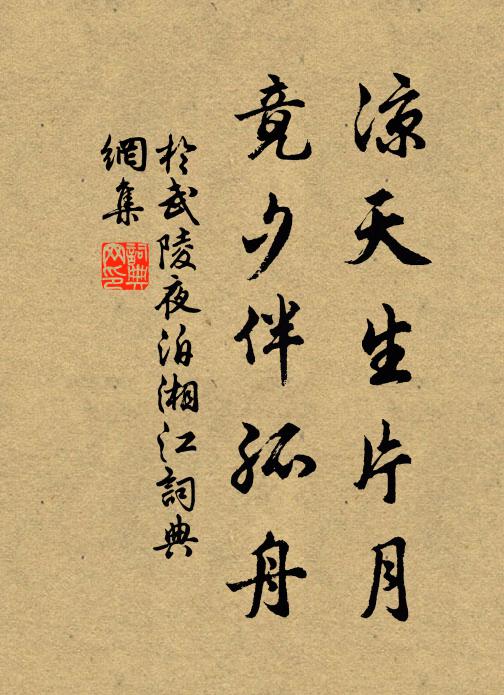 凉天生片月
竟夕伴孤舟
於武陵夜泊湘江詞典
網集
詞典
网印